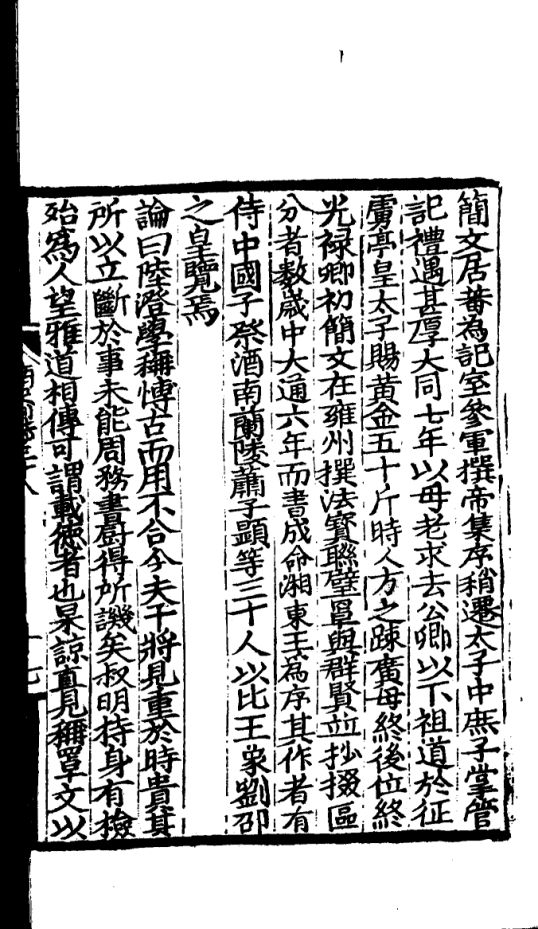 簡文居蕃為記室參軍撰帝集序稍遷太子中庶子掌管
記禮遇甚厚大同七年以母老求去公卿以下祖道於征
虜亭皇太子賜黃金五十斤時人方之踈廣母終後位終
光禄卿初簡文在雍州撰法寳聯璧罩與群賢並抄掇區
分者數歲中大通六年而書成命湘東王為序其作者有
侍中國子祭酒南蘭陵蕭子顯等三十人以比王象劉邵
之皇覽焉
論曰陸澄學稱愽古而用不合今夫干將見重於時貴其
所以立斷於事未能周務書廚得所譏矣叔明持身有檢
殆為人望雅道相傳可謂載德者也杲諒直見稱罩文以